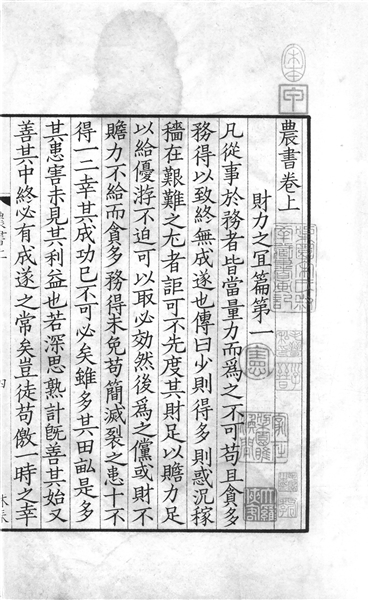 農書卷上
財力之宜篇第一
凡從事於務者皆當量力而爲之不可苟且貪多
務得以致終無成遂也傳曰少則得多則惑況稼
穡在艱難之尤者詎可不先度其財足以贍力足
以給優游不迫可以取必効然後爲之儻或財不
贍力不給而貪多務得未免苟簡滅裂之患十不
得一二幸其成功已不可必矣雖多其田畝是多
其患害未見其利益也若深思熟計旣善其始又
善其中終必有成遂之常矣豈徒苟儌一時之幸